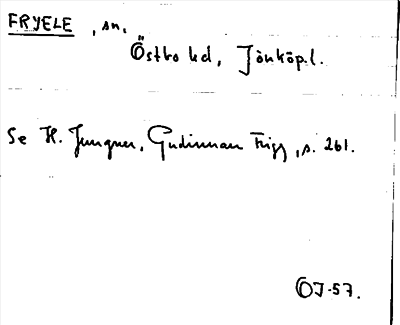 FRYELE, sn.
Östbo hd, Jönköp.l.
Se H. Jungner, Gudinnan Frigg, s. 261.
OJ-57.